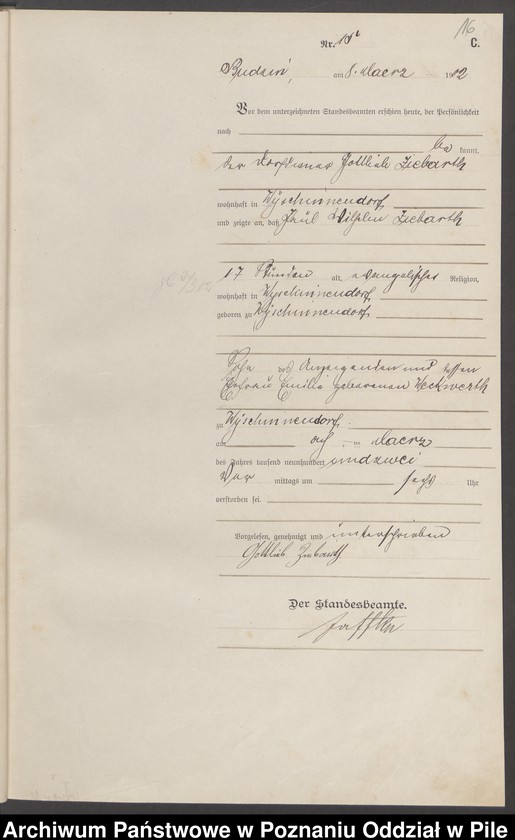 16
Nr. 15
C.
Budzin, am 8. Maerz 1902
Vor dem unterzeichneten Standesbeamten erschien heute, der Persönlichkeit
nach
be kannt.
der Gottlieb Ziebarth
wohnhaft in Wyschinnendorf
und zeigte an, daß Paul Wilhelm Ziebarth
17 Stunden alt, evangelischer Religion,
wohnhaft in Wyschinnendorf
geboren zu Wyschinnendorf
Sohn des Anzeigenden und dessen
Ehefrau Emilie geborenen Heckwerth
zu Wyschinnendorf
am acht ten Maerz
des Jahres tausend neunhundert undzwei
Vor mittags um sechs Uhr
verstorben sei.
Vorgelesen, genehmigt und unterschrieben
Gottlieb Ziebarth
Der Standesbeamte.
Archiwum Państwowe w Poznaniu Oddział w Pile